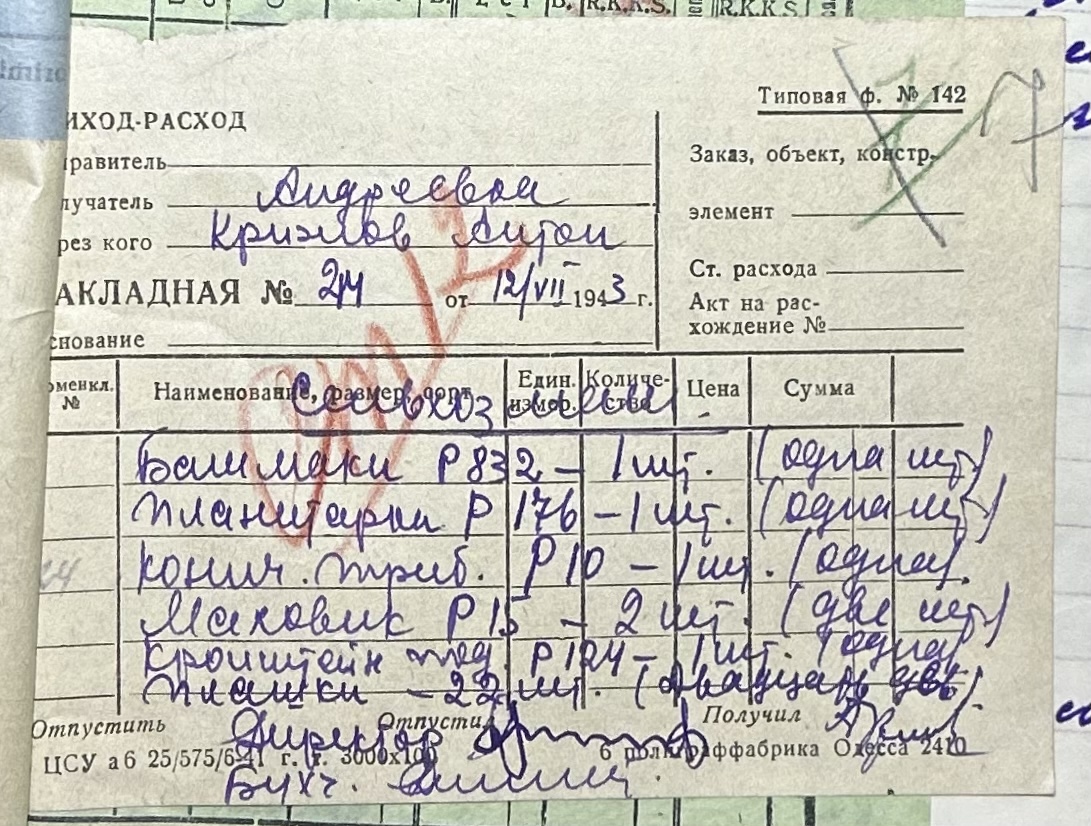 R.K.K.S. R.K.K.S.
Типовая ф. № 142
ИХОД-РАСХОД
правитель
лучатель Андреевой
рез кого Кризмов Антон
АКЛАДНАЯ № 24 от 12/VII 1943 г.
снование
Заказ, объект, констр.
элемент
Ст. расхода
Акт на рас-
хождение №
17
оменкл. № Наименование, размер, сорт Един. измер. Количе-ство Цена Сумма
Совхоз
Башмаки Р 832 – 1 шт. (одна шт)
Планитарки Р 176 – 1 шт. (одна шт)
Конич. триб. Р 10 – 1 шт. (одна).
Маховик Р 15 – 2 шт. (две шт)
Кронштейн под. Р 124 – 1 шт. (одна)
Плашки – 22 шт. (двадцать две
Отпустить Отпустил Получил
Директор
ЦСУ а6 25/575/6-41 г. т. 3000х100 6 полиграффабрика Одесса 2410
Бухг.